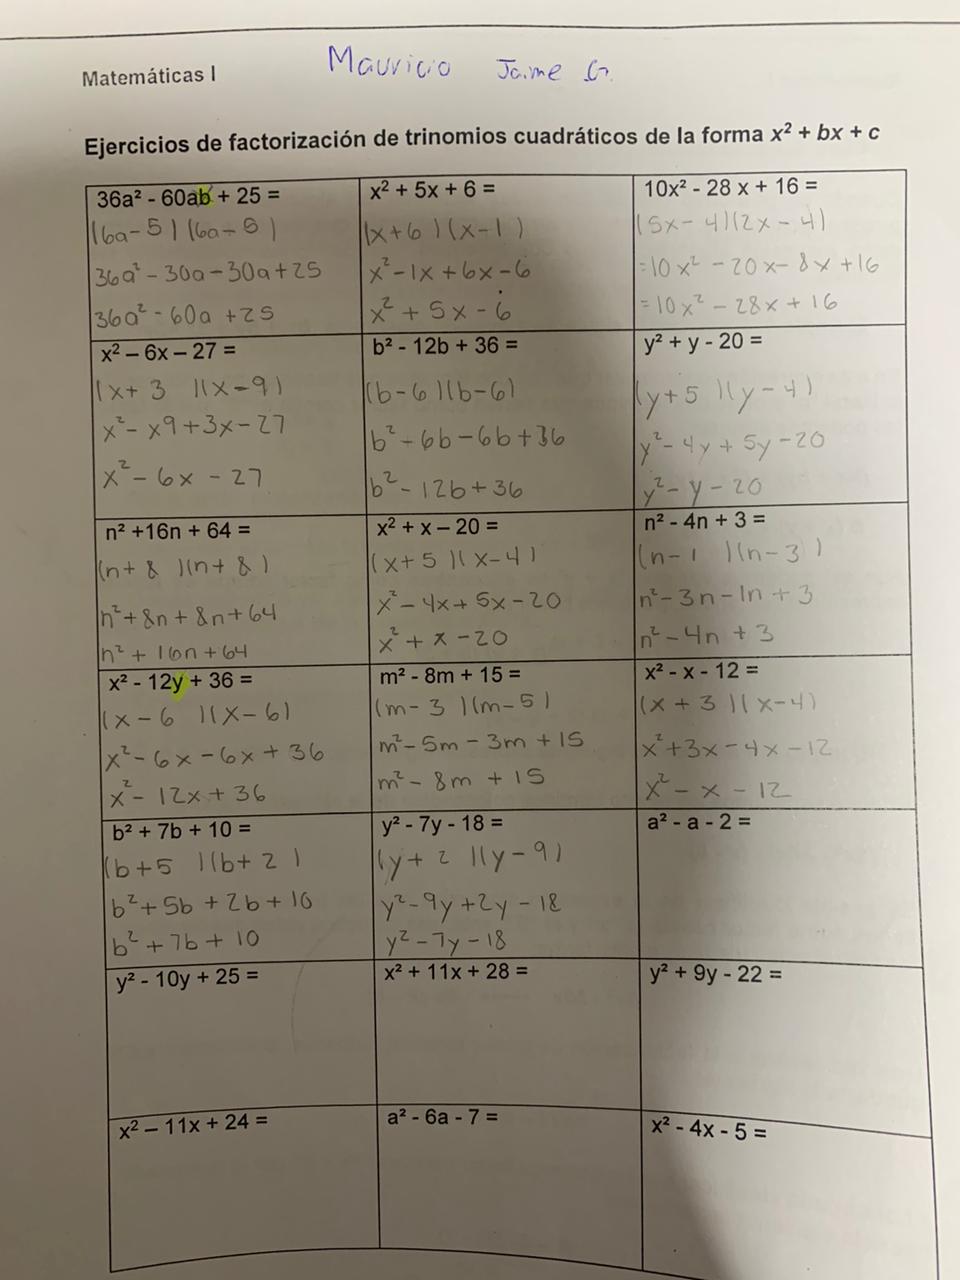 Matemáticas I
Mauricio Jaime G.
Ejercicios de factorización de trinomios cuadráticos de la forma x² + bx + c
36a² - 60ab + 25 =
(6a-5)(6a-5)
36a² - 30a - 30a + 25
36a² - 60a + 25
x² + 5x + 6 =
(x+6)(x-1)
x² - 1x + 6x - 6
x² + 5x - 6
10x² - 28 x + 16 =
(5x - 4)(2x - 4)
=10x² - 20x - 8x + 16
=10x² - 28x + 16
x² – 6x – 27 =
(x+3)(x-9)
x² - x9 + 3x - 27
x² - 6x - 27
b² - 12b + 36 =
(b-6)(b-6)
b² - 6b - 6b + 36
b² - 12b + 36
y² + y - 20 =
(y+5)(y-4)
y² - 4y + 5y - 20
y² - y - 20
n² +16n + 64 =
(n+8)(n+8)
n² + 8n + 8n + 64
n² + 16n + 64
x² + x – 20 =
(x+5)(x-4)
x² - 4x + 5x - 20
x² + x - 20
n² - 4n + 3 =
(n-1)(n-3)
n² - 3n - 1n + 3
n² - 4n + 3
x² - 12y + 36 =
(x-6)(x-6)
x² - 6x - 6x + 36
x² - 12x + 36
m² - 8m + 15 =
(m-3)(m-5)
m² - 5m - 3m + 15
m² - 8m + 15
x² - x - 12 =
(x+3)(x-4)
x² + 3x - 4x - 12
x² - x - 12
b² + 7b + 10 =
(b+5)(b+2)
b² + 5b + 2b + 10
b² + 7b + 10
y² - 7y - 18 =
(y+2)(y-9)
y² - 9y + 2y - 18
y² - 7y - 18
a² - a - 2 =
y² - 10y + 25 =
x² + 11x + 28 =
y² + 9y - 22 =
x² – 11x + 24 =
a² - 6a - 7 =
x² - 4x - 5 =